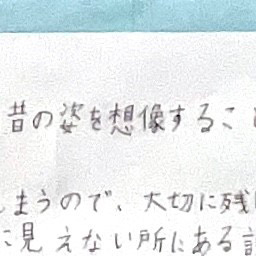 昔の姿を想像するこ
まうので、大切に残
に見えない所にある